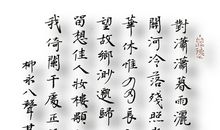 對瀟瀟暮雨灑
關河冷落殘照
華休惟有長
望故鄉渺邈歸
留想佳人妝樓顒
我倚闌干處正
柳永八聲甘